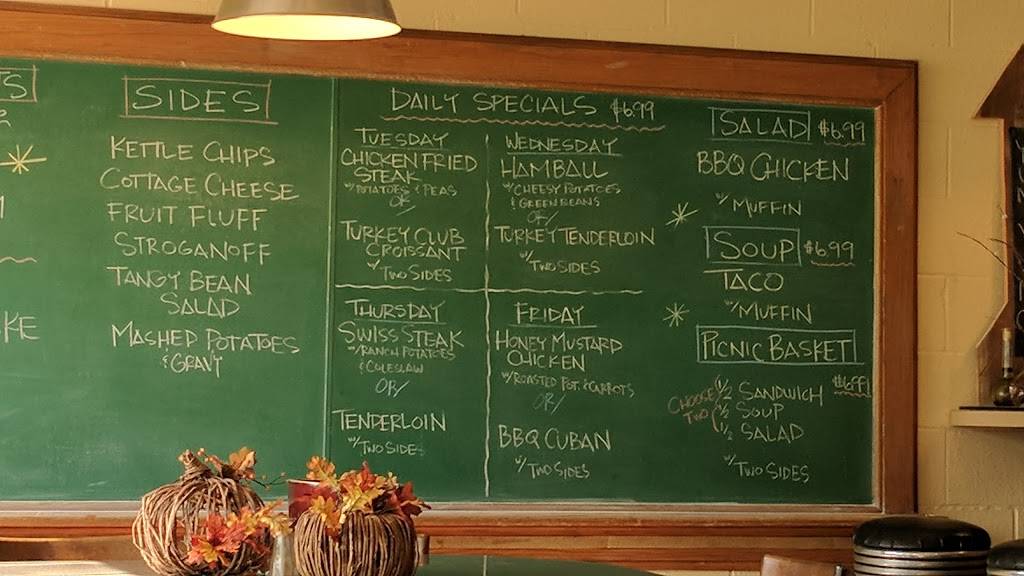 SIDES
KETTLE CHIPS
COTTAGE CHEESE
FRUIT FLUFF
STROGANOFF
TANGY BEAN
SALAD
MASHED POTATOES
& GRAVY
DAILY SPECIALS $6.99
TUESDAY
CHICKEN FRIED
STEAK
W/ POTATOES & PEAS
OR/
TURKEY CLUB
CROISSANT
W/ TWO SIDES
WEDNESDAY
HAMBALL
W/ CHEESY POTATOES
& GREEN BEANS
OR/
TURKEY TENDERLOIN
W/ TWO SIDES
THURSDAY
SWISS STEAK
W/ RANCH POTATOES
& COLESLAW
OR/
TENDERLOIN
W/ TWO SIDES
FRIDAY
HONEY MUSTARD
CHICKEN
W/ ROASTED POT. & CARROTS
OR/
BBQ CUBAN
W/ TWO SIDES
SALAD $6.99
BBQ CHICKEN
W/ MUFFIN
SOUP $6.99
TACO
W/ MUFFIN
PICNIC BASKET
$6.99
CHOOSE TWO
1/2 SANDWICH
1/2 SOUP
1/2 SALAD
W/ TWO SIDES